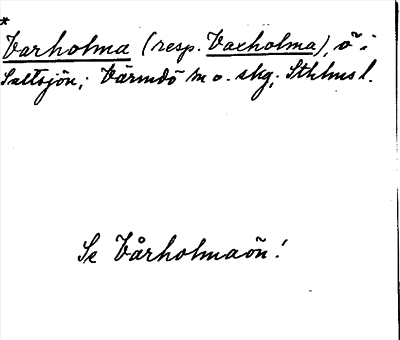 *
Varholma (resp. Vaxholma), ö i
Saltsjön; Värmdö m o. skg; Sthlms l.
Se Vårholmaön!